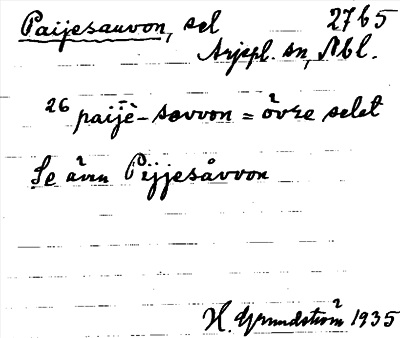 Paijesauvon, sel 2765
Arjepl. sn, Nbl.
26 paijḕ-savvon = övre selet
Se även Pijjesåvvon
H. Grundström 1935